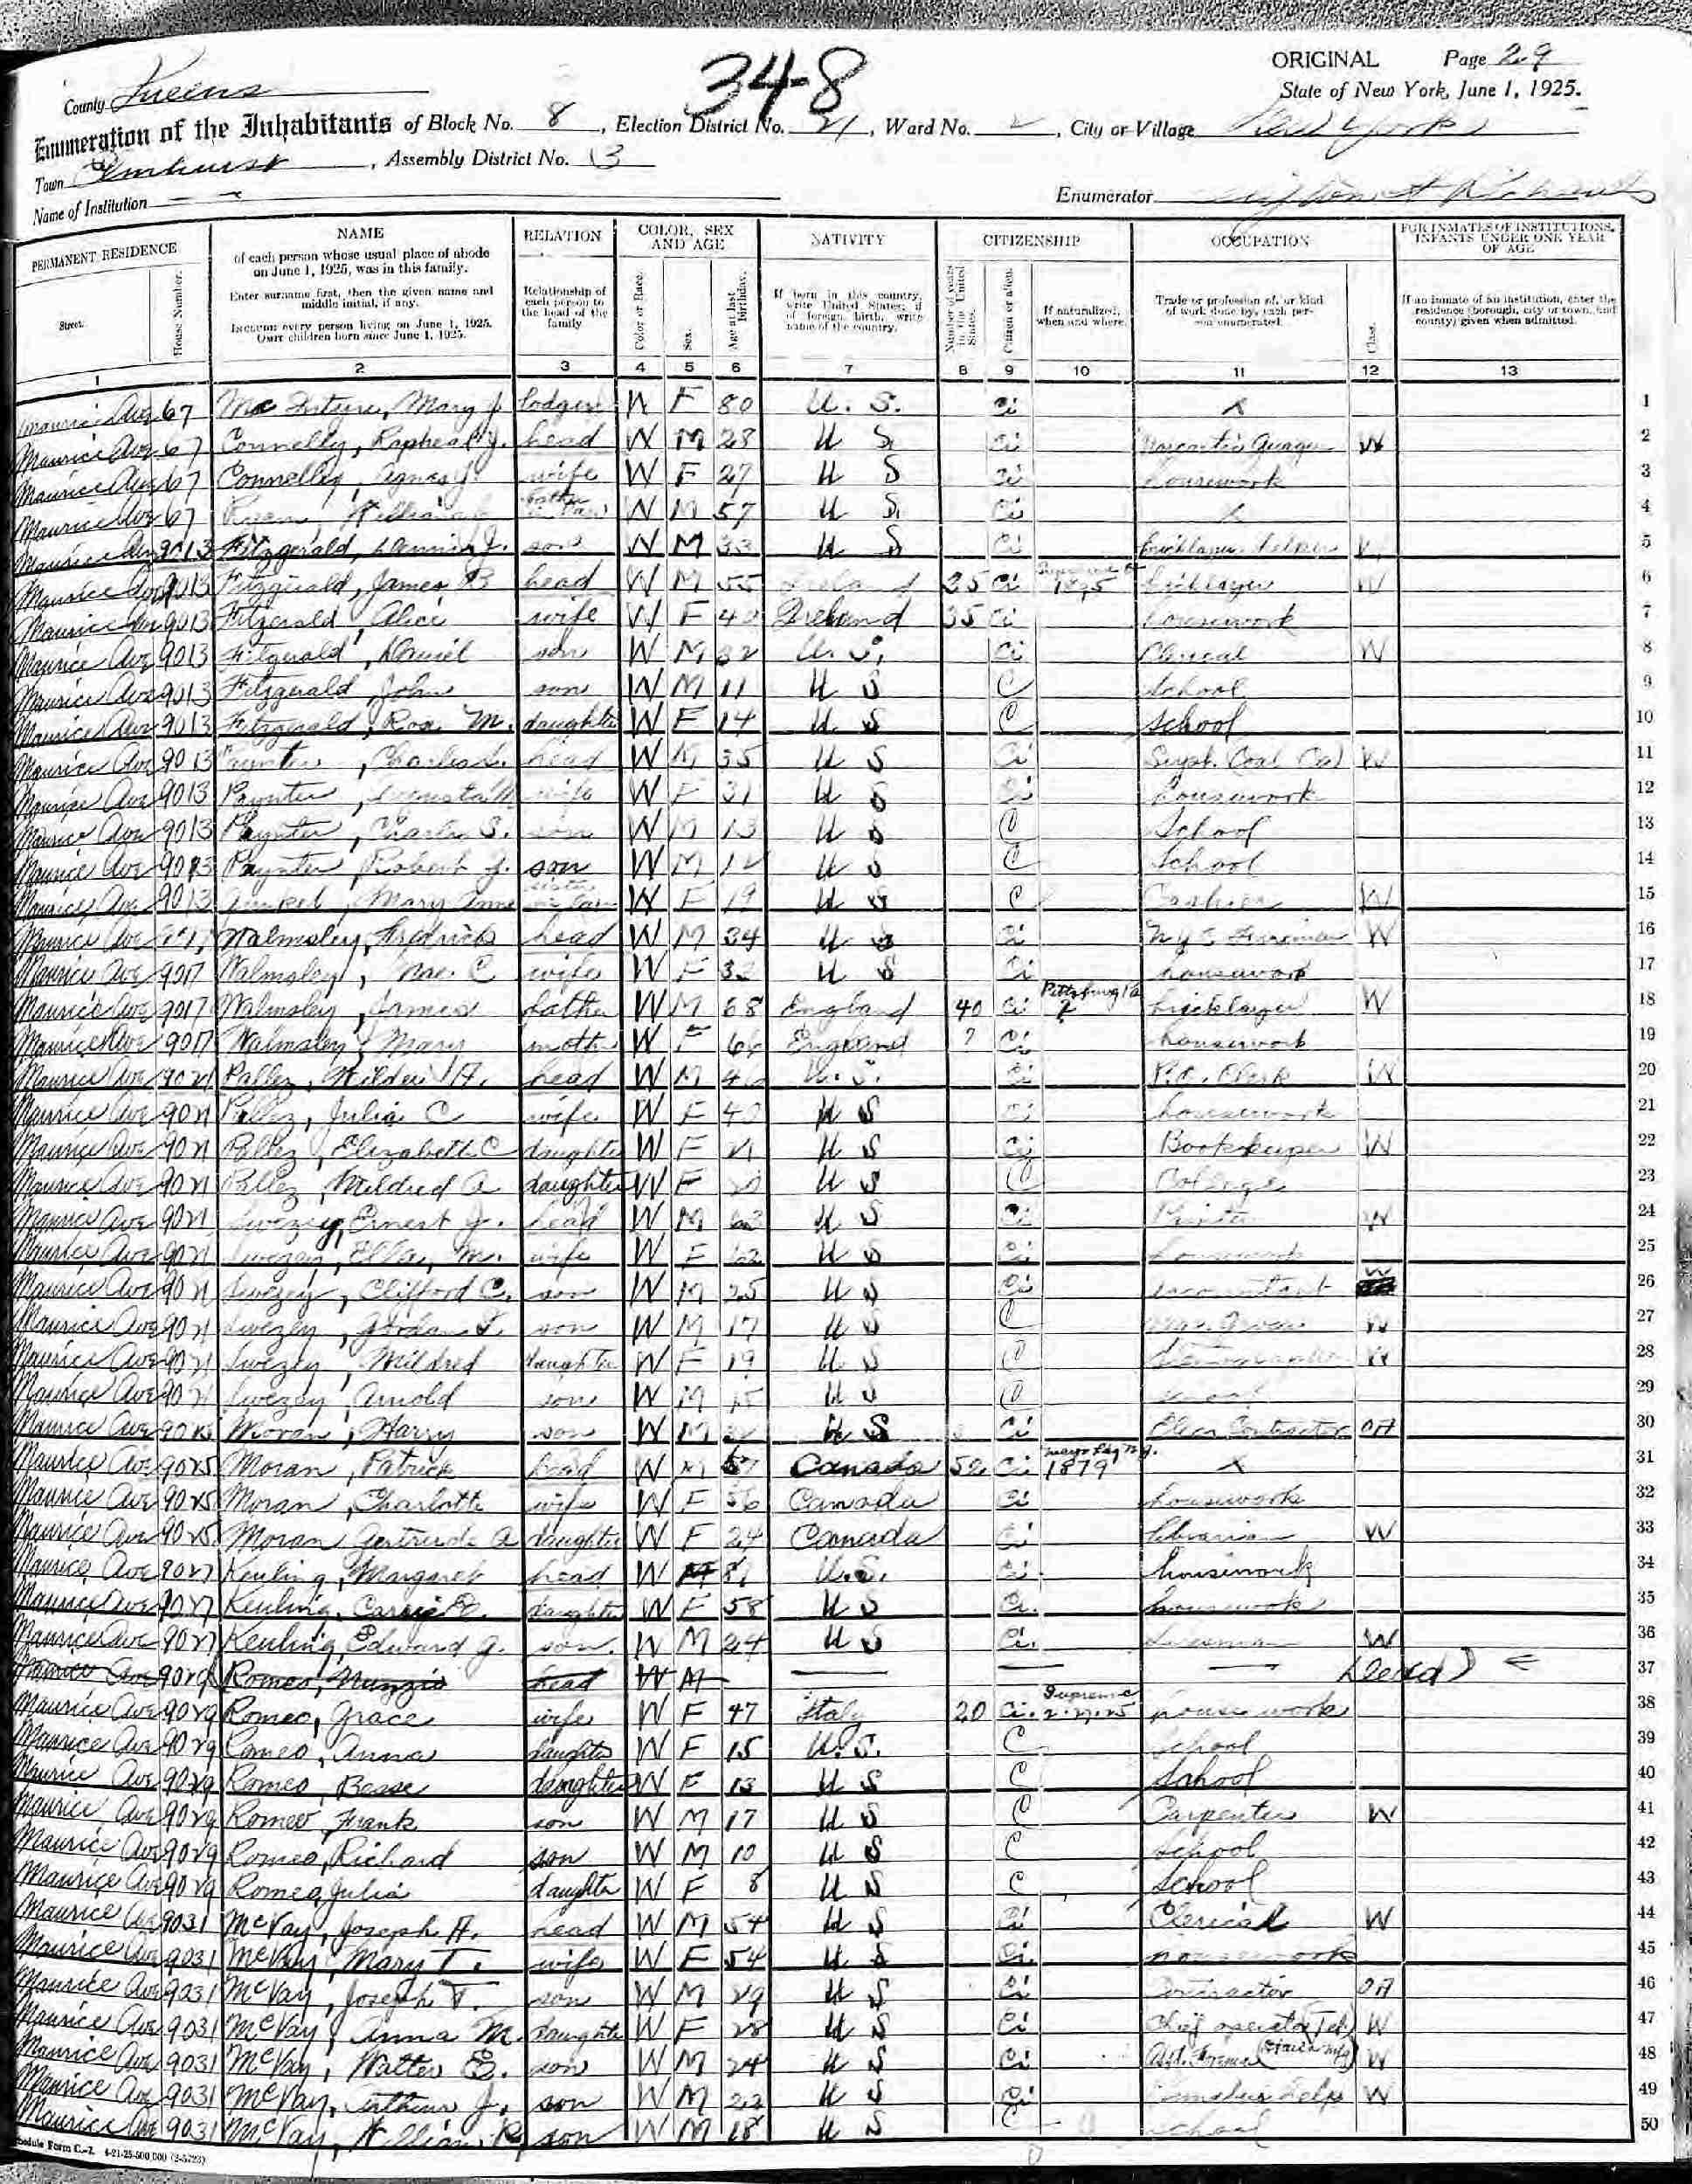 ORIGINAL Page 29
County Queens 34-8 State of New York, June 1, 1925.
Enumeration of the Inhabitants of Block No. 8, Election District No. 21, Ward No. 2, City or Village New York
Town Elmhurst, Assembly District No. 3
Name of Institution Enumerator
PERMANENT RESIDENCE NAME RELATION COLOR, SEX AND AGE NATIVITY CITIZENSHIP OCCUPATION FOR INMATES OF INSTITUTIONS, INFANTS UNDER ONE YEAR OF AGE
Street. House Number.
of each person whose usual place of abode on June 1, 1925, was in this family.
Enter surname first, then the given name and middle initial, if any.
INCLUDE every person living on June 1, 1925. OMIT children born since June 1, 1925.
Relationship of each person to the head of the family
Color or Race. Sex. Age at last birthday.
If born in this country, write United States; if of foreign birth, write name of the country.
Number of years in the United States. Citizen or alien. If naturalized, when and where.
Trade or profession of, or kind of work done by, each person enumerated. Class.
If an inmate of an institution, enter the residence (borough, city or town, and county) given when admitted.
1 2 3 4 5 6 7 8 9 10 11 12 13
Maurice Ave 67 Mary J. lodger W F 80 U. S. Ci X 1
Maurice Ave 67 Connelly, J. head W M 28 U S Ci W 2
Maurice Ave 67 Connelly, Agnes J. wife W F 27 U S Ci housework 3
Maurice Ave 67 father in law W M 57 U S Ci X 4
Maurice Ave 9013 Fitzgerald, J. son W M 33 U S Ci bricklayer helper W 5
Maurice Ave 9013 Fitzgerald, James B head W M 55 Ireland 25 Ci bricklayer W 6
Maurice Ave 9013 Fitzgerald, Alice wife W F Ireland 35 Ci housework 7
Maurice Ave 9013 Fitzgerald, Daniel son W M 32 U. S. Ci Clerical W 8
Maurice Ave 9013 Fitzgerald, John son W M 11 U S C School 9
Maurice Ave 9013 Fitzgerald, Rose M. daughter W F 14 U S C School 10
Maurice Ave 9013 Paynter, Charles head W M 35 U S Ci Supt. Coal Co) W 11
Maurice Ave 9013 Paynter, Augusta M wife W F 31 U S Ci housework 12
Maurice Ave 9013 Paynter, Charles S. son W M 13 U S C School 13
Maurice Ave 9013 Paynter, Robert J. son W M 12 U S C School 14
Maurice Ave 9013 Mary Anne sister in law W F 19 U S C Cashier W 15
Maurice Ave Walmsley, Fredrick head W M 34 U S Ci W 16
Maurice Ave 9017 Walmsley, Mae C wife W F 32 U S Ci housework 17
Maurice Ave 9017 Walmsley, James father W M 68 England 40 Ci Pittsburg Pa ? bricklayer W 18
Maurice Ave 9017 Walmsley, Mary mother W F 66 England ? Ci housework 19
Maurice Ave 9021 Pallez, H. head W M U. S. Ci P.O. Clerk W 20
Maurice Ave 9021 Pallez, Julia C wife W F 40 U S Ci housework 21
Maurice Ave 9021 Pallez, Elizabeth C daughter W F 21 U S Ci Bookkeeper W 22
Maurice Ave 9021 Pallez, Mildred A daughter W F 20 U S C College 23
Maurice Ave 9021 Swezey, Ernest J. head W M U S Ci W 24
Maurice Ave 9021 Swezey, Ella, M. wife W F U S Ci housework 25
Maurice Ave 9021 Swezey, Clifford C. son W M 25 U S Ci accountant W 26
Maurice Ave 9021 Swezey, son W M 17 U S C W 27
Maurice Ave 9021 Swezey, Mildred daughter W F 19 U S C Stenographer W 28
Maurice Ave 9021 Swezey, Arnold son W M 15 U S C school 29
Maurice Ave Moran, Harry son W M U S Ci Elec Contractor OA 30
Maurice Ave 9025 Moran, Patrick head W M Canada 52 Ci 1879 X 31
Maurice Ave 9025 Moran, Charlotte wife W F 56 Canada Ci housework 32
Maurice Ave 9025 Moran Gertrude A daughter W F 24 Canada Ci librarian W 33
Maurice Ave 9027 Keuling, Margaret head W F 81 U.S. Ci housework 34
Maurice Ave 9027 Keuling, Carrie daughter W F 58 U S Ci. housework 35
Maurice Ave 9027 Keuling, Edward G. son. W M 24 U S Ci. W 36
Maurice Ave 9029 Romeo, Nunzio head W M (dead) 37
Maurice Ave 9029 Romeo, Grace wife W F 47 Italy 20 Ci. Supreme house work 38
Maurice Ave 9029 Romeo, Anna daughter W F 15 U.S. C School 39
Maurice Ave 9029 Romeo, Besse daughter W F 13 U S C School 40
Maurice Ave 9029 Romeo, Frank son W M 17 U S C Carpenter W 41
Maurice Ave 9029 Romeo, Richard son W M 10 U S C School 42
Maurice Ave 9029 Romeo, Julia daughter W F 8 U S C School 43
Maurice Ave 9031 McVay, Joseph H. head W M 54 U S Ci Clerical W 44
Maurice Ave 9031 McVay, Mary T. wife W F 54 U S Ci. housework 45
Maurice Ave 9031 McVay, Joseph T. son W M 29 U S Ci Contractor OA 46
Maurice Ave 9031 McVay, Anna M. daughter W F 28 U S Ci Chief operator (Tel) W 47
Maurice Ave 9031 McVay, Walter E. son W M 24 U S Ci W 48
Maurice Ave 9031 McVay, Arthur J. son W M 22 U S Ci W 49
Maurice Ave 9031 McVay, William R. son W M 18 U S C school 50